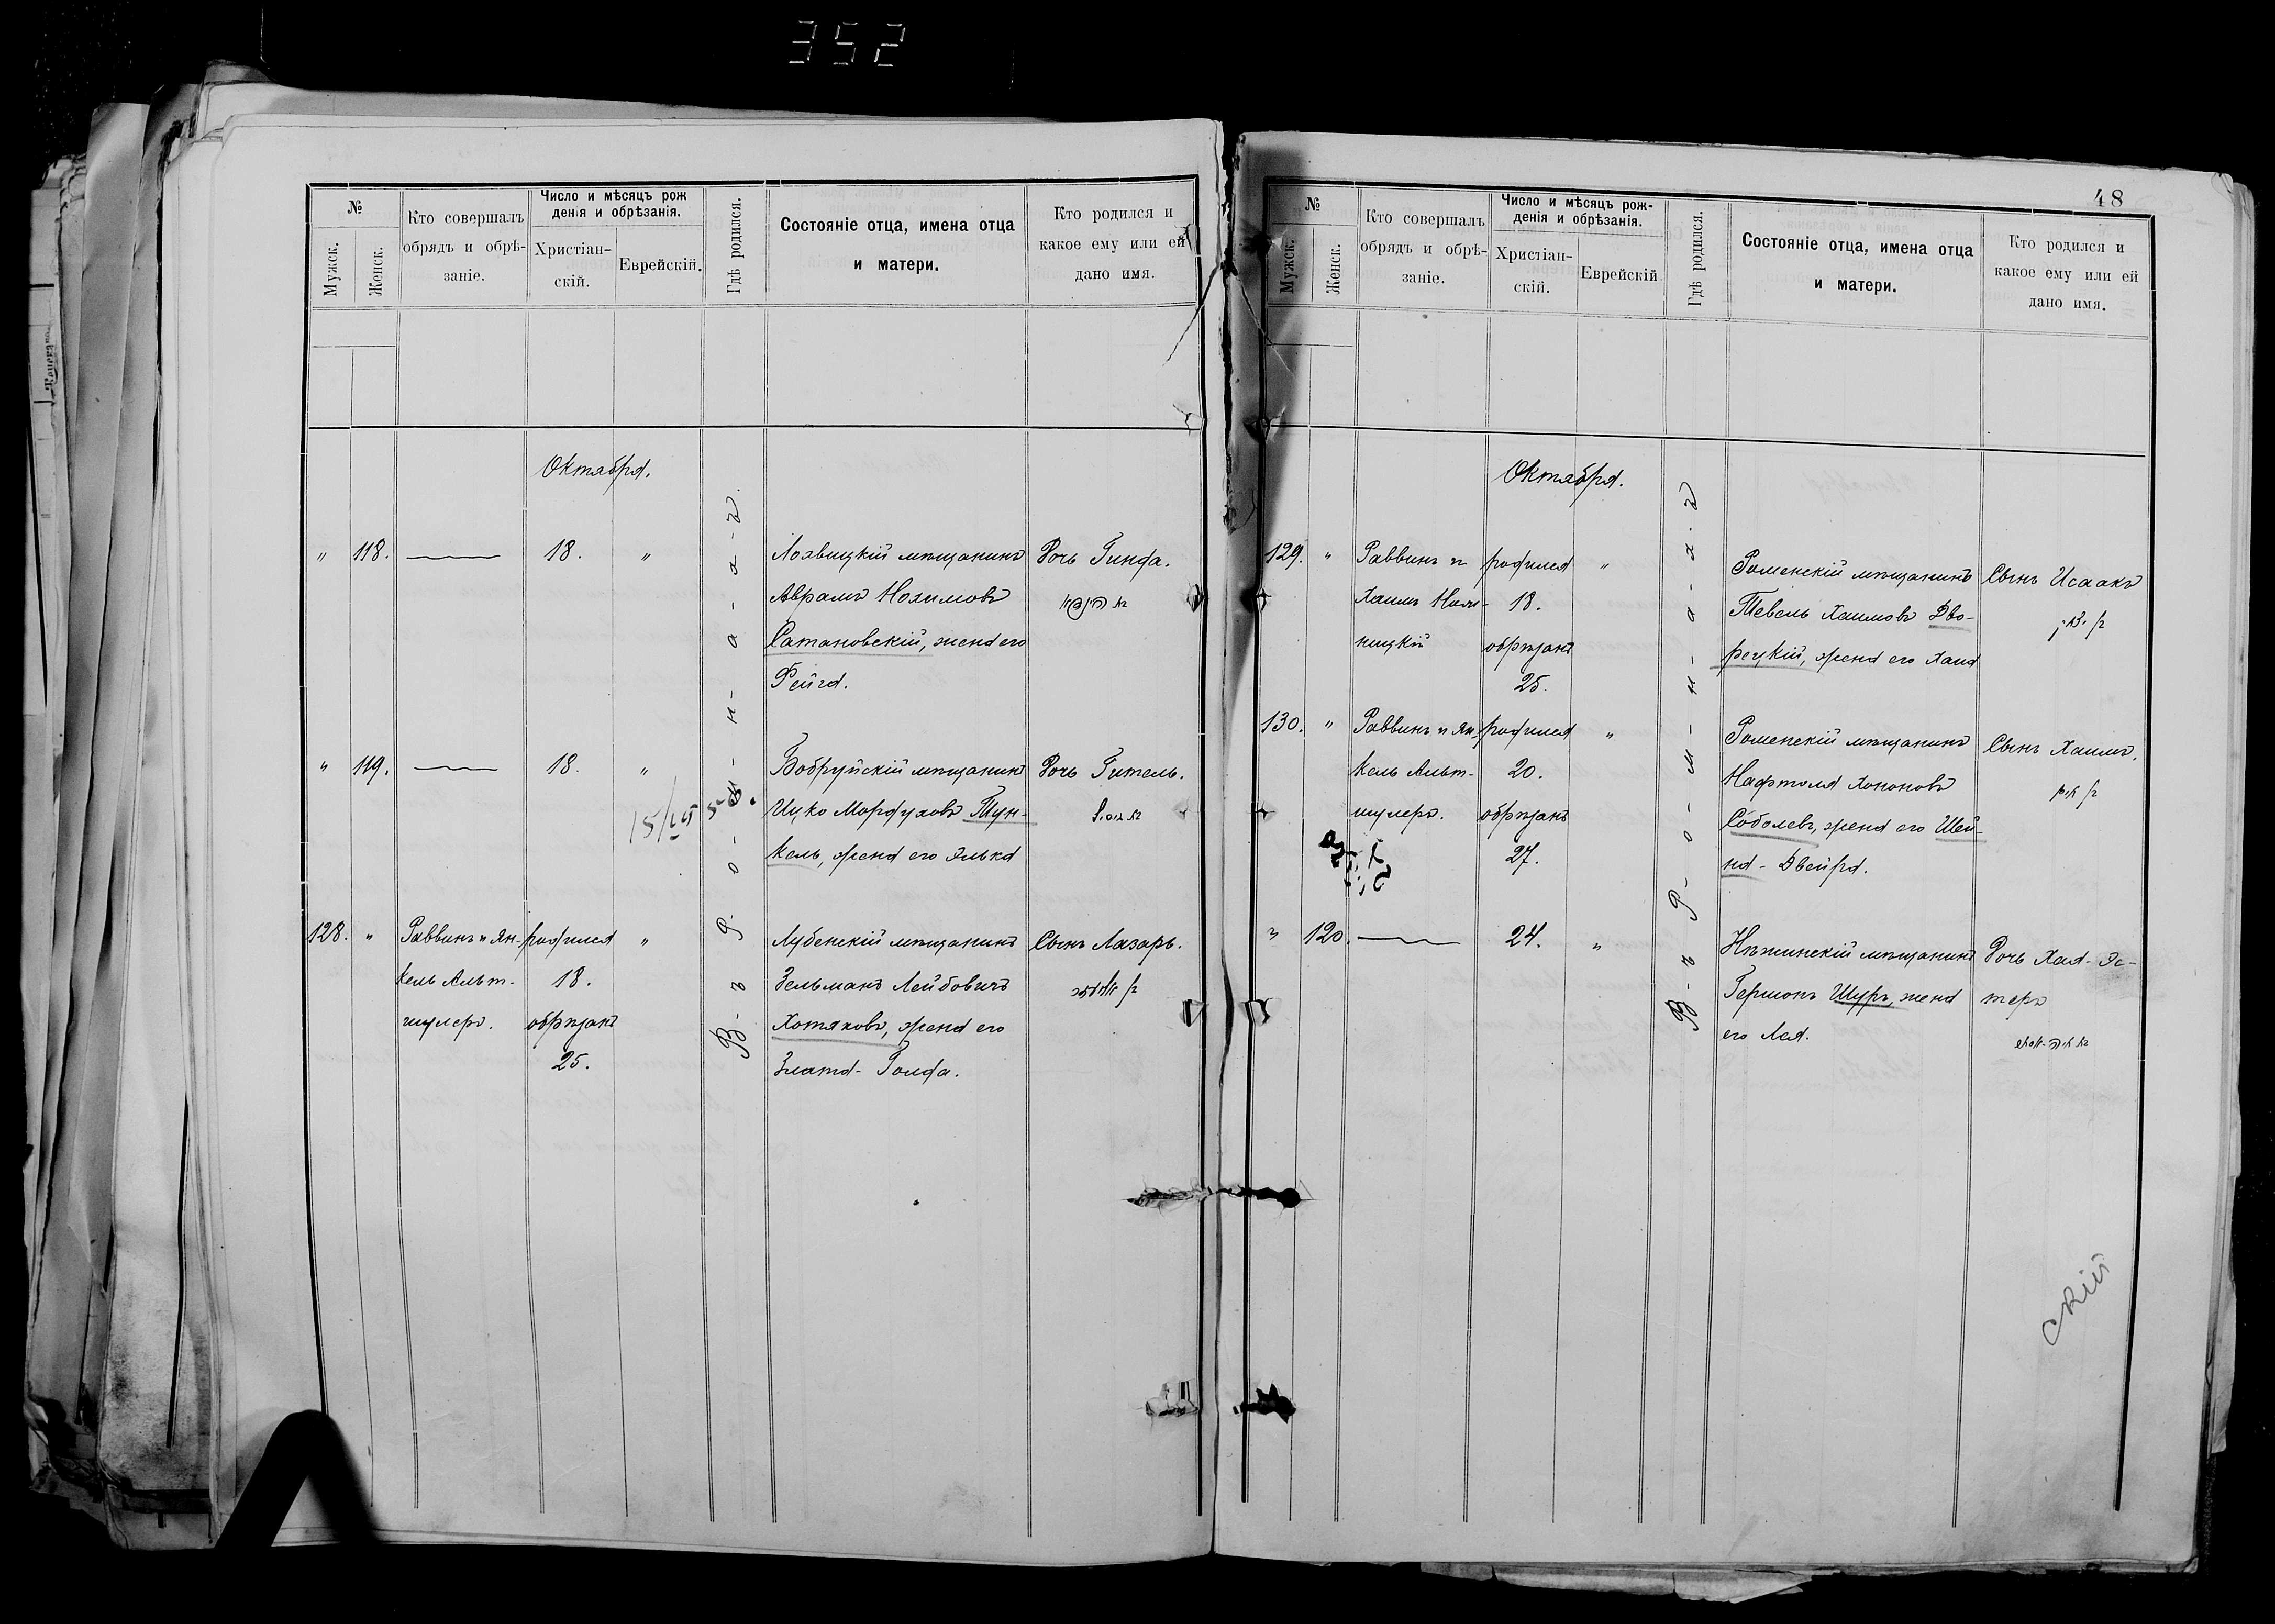 352
№
Мужск.
Женск.
Кто совершалъ
обрядъ и обрѣ-
заніе.
Число и мѣсяцъ рож
денія и обрѣзанія.
Христіан-
скій.
Еврейскій.
Гдѣ родился.
Состояніе отца, имена отца
и матери.
Кто родился и
какое ему или ей
дано имя.
Октября.
В-ъ Р-о-м-н-а-х-ъ.
" 118. — 18. "
Лохвицкій мѣщанинъ
Аврамъ Нохимовъ
Сатановскій, жена его
Фейга.
Дочь Гинда.
" 119. — 18. "
15/VI 56.
Бобруйскій мѣщанинъ
Ицко Мордуховъ Тун-
кель, жена его Элька
Дочь Гитель.
128. " Раввинъ и Ян-
кель Альт-
шулеръ.
родился
18.
обрѣзанъ
25.
"
Лубенскій мѣщанинъ
Зельманъ Лейбовичъ
Хотяковъ, жена его
Злата-Голда.
Сынъ Лазарь.
48
№
Мужск.
Женск.
Кто совершалъ
обрядъ и обрѣ-
заніе.
Число и мѣсяцъ рож-
денія и обрѣзанія.
Христіан-
скій.
Еврейскій
Гдѣ родился.
Состояніе отца, имена отца
и матери.
Кто родился и
какое ему или ей
дано имя.
Октября.
В-ъ Р-о-м-н-а-х-ъ
129. " Раввинъ и
Хаимъ
ницкій
родился
18.
обрѣзанъ
25.
"
Роменскій мѣщанинъ
Тевель Хаимовъ Дво-
рецкій, жена его Хана
Сынъ Исаакъ
130. " Раввинъ и Ян-
кель Альт-
шулеръ.
родился
20.
обрѣзанъ
27.
"
Роменскій мѣщанинъ
Нафтоля Хононовъ
Соболевъ, жена его Шей-
на-Двейра.
Сынъ Хаимъ.
" 120. — 24. "
Нѣжинскій мѣщанинъ
Гершонъ Шуръ, жена
его Лея.
Дочь Хая-Эс-
теръ
скій